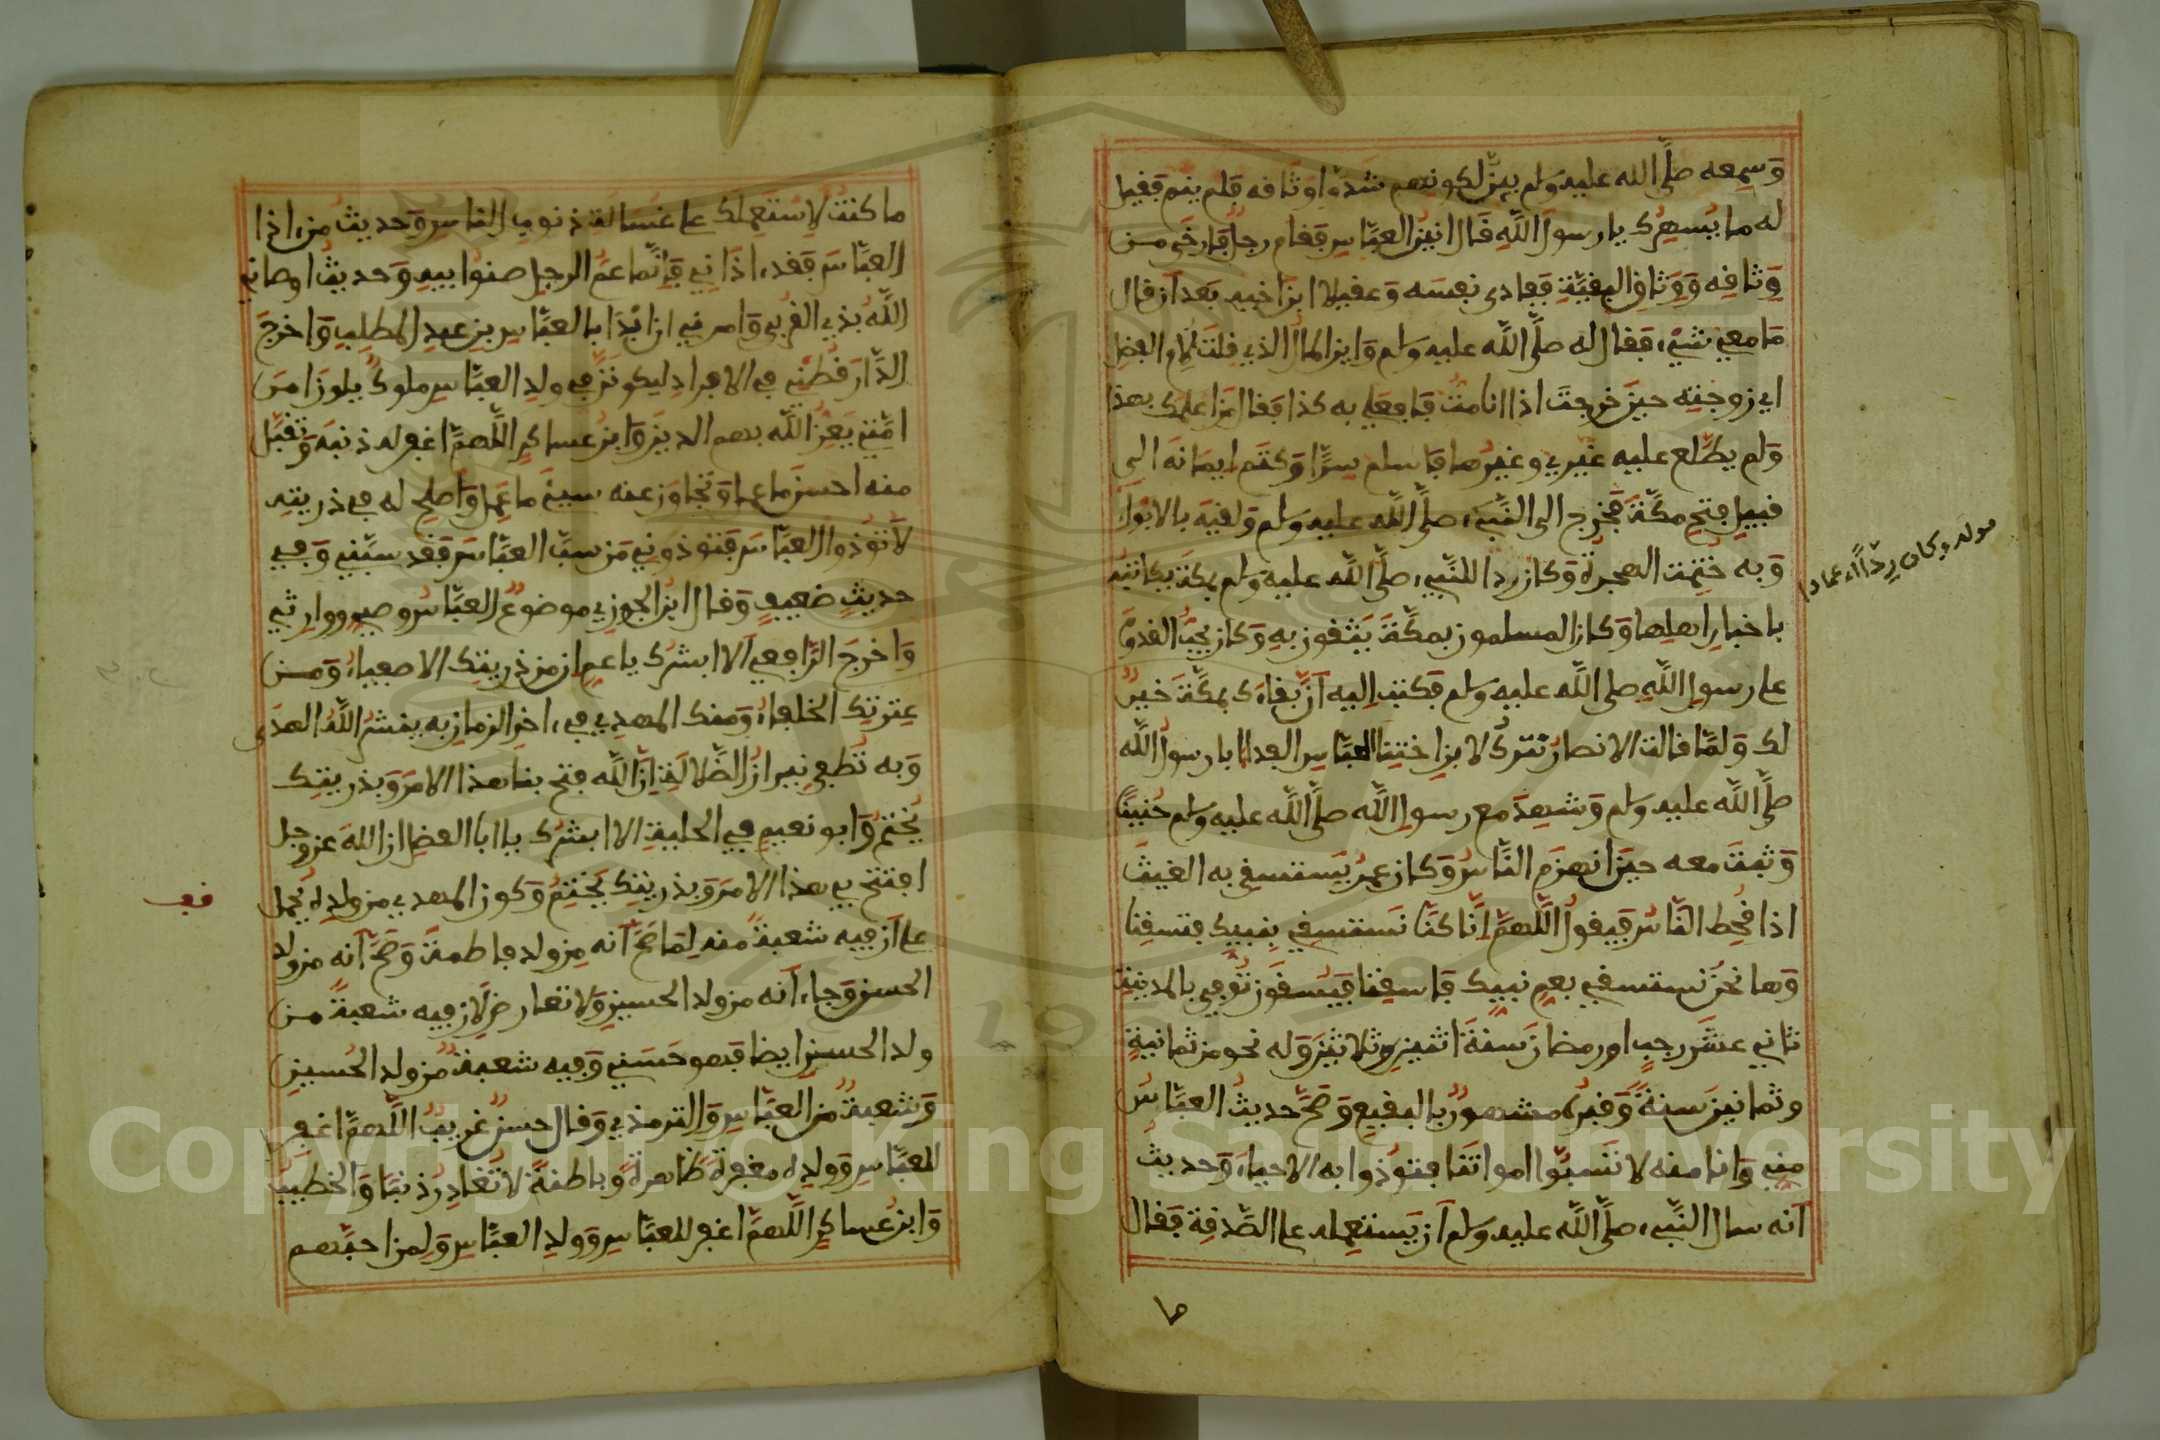 وسمعه صلى الله عليه وسلم يئن لكونهم شدوا وثاقه فلم ينم فقيل
له ما يسهرك يا رسول الله قال انين العباس فقام رجل فارخى من
وثاقه ووثاق البقية ففادى نفسه وعقيلا ابن اخيه بعد ان قال
ما معي شيء فقال له صلى الله عليه وسلم واين المال الذي قلت لام الفضل
اي زوجته حين خرجت اذا انا مت فافعلي به كذا فقال من اعلمك بهذا
ولم يطلع عليه غيري وغيرها فاسلم سرا وكتم ايمانه الى
قبيل فتح مكة فخرج الى النبيء صلى الله عليه وسلم ولقيه بالابواء
وبه ختمت الهجرة وكان ردءا للنبيء صلى الله عليه وسلم بمكة يكاتبه
باخبار اهلها وكان المسلمون بمكة يثقون به وكان يحب القدوم
على رسول الله صلى الله عليه وسلم فكتب اليه ان بقاءك بمكة خير
لك ولما قالت الانصار نترك لابن اختنا العباس الفداء يا رسول الله
صلى الله عليه وسلم وشهد مع رسول الله صلى الله عليه وسلم حنينا
وثبت معه حين انهزم الناس وكان عمر يستسقي به الغيث
اذا قحط الناس فيقول اللهم انا كنا نستسقي بنبيك فتسقنا
وها نحن نستسقي بعم نبيك فاسقنا فيسقون توفي بالمدينة
ثاني عشر رجب او رمضان سنة اثنين وثلاثين وله نحو من ثمانية
وثمانين سنة وقبره مشهور بالبقيع وصح حديث العباس
مني وانا منه لا تسبوا امواتنا فتوذوا به الاحياء وحديث
انه سال النبيء صلى الله عليه وسلم ان يستعمله على الصدقة فقال
ما
ما كنت لاستعملك على غسالة ذنوب الناس وحديث من اذا
العباس فقد اذاني فانما عم الرجل صنوا بيه وحديث اوصاني
الله بذي القربى وامرني ان ابدا بالعباس بن عبد المطلب واخرج
الدارقطني في الافراد ليكونن في ولد العباس ملوك يلون امر
امتي يعز الله بهم الدين وابن عساكر اللهم اغفر له ذنبه وتقبل
منه احسن ما عمل وتجاوز عنه سيئ ما عمل واصلح له في ذريته
لا توذوا العباس فتوذوني من سب العباس فقد سبني وفي
حديث ضعيف وقال ابن الجوزي موضوع العباس وصيي ووارثي
واخرج الرافعي الا ابشرك يا عم ان من ذريتك الاصفياء ومن
عترتك الخلفاء ومنك المهدي في اخر الزمان به ينشر الله الهدى
وبه تطفى نيران الضلالة ان الله فتح بنا هذا الامر وبذريتك
يختم وابو نعيم في الحلية الا ابشرك يا ابا الفضل ان الله عز وجل
افتتح بي هذا الامر وبذريتك يختتم وكون المهدي من ولده يحمل
على ان فيه شعبة منه لما صح انه من ولد فاطمة وصح انه من ولد
الحسن وجاء انه من ولد الحسين ولا تعارض لان فيه شعبة من
ولد الحسن ايضا فهو حسني وفيه شعبة من ولد الحسين
وشعبة من العباس والترمذي وقال حسن غريب اللهم اغفر
للعباس وولده مغفرة ظاهرة وباطنة لا تغادر ذنبا والخطيب
وابن عساكر اللهم اغفر للعباس وولد العباس ولمن احبهم
Copyright © King Saud University
1957